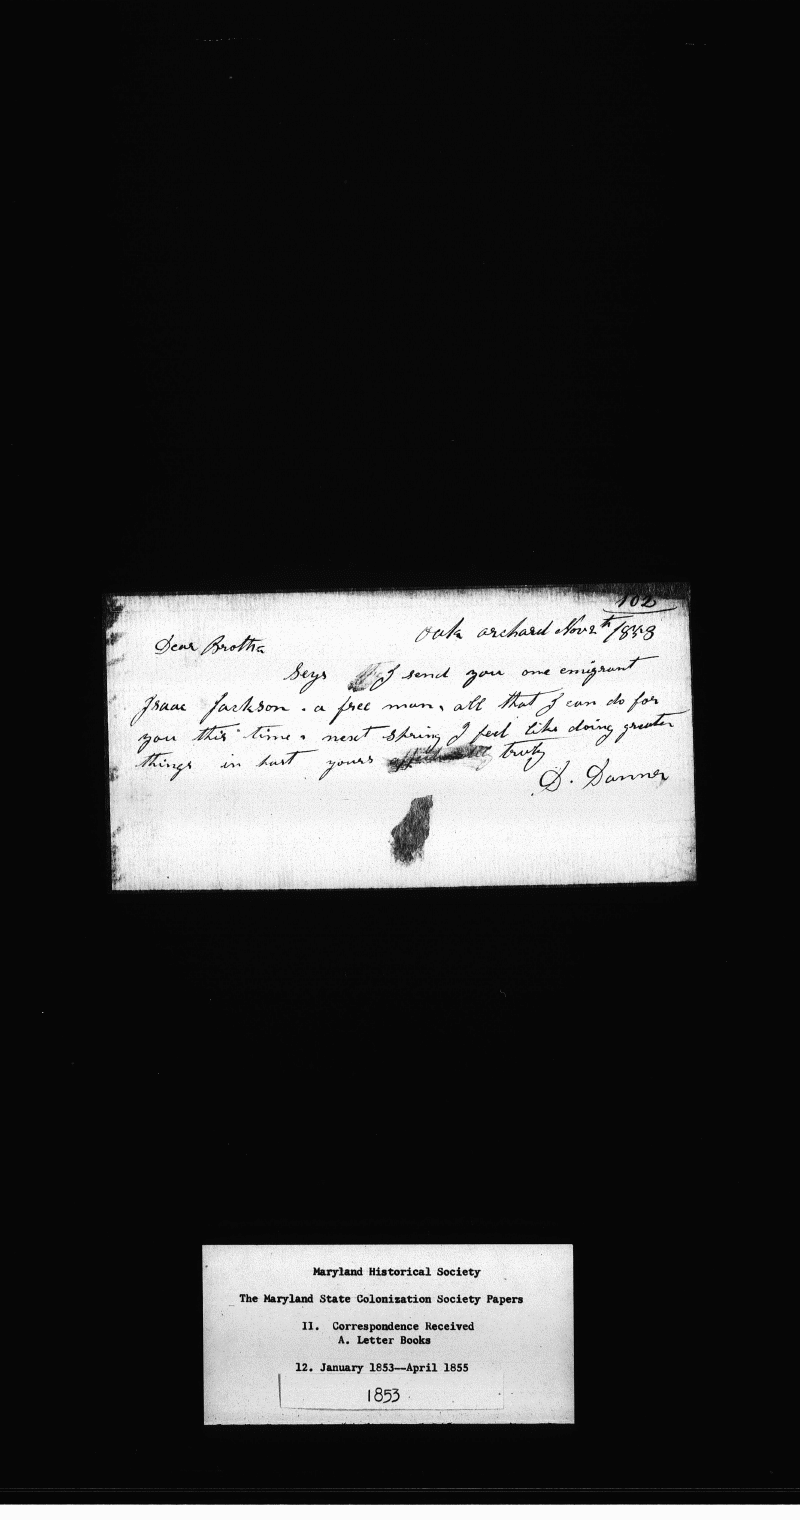 102
Oak orchard Nov 2th /1853
Dear Brotha
Seys I send you one emigrant
Isaac Jackson . a free man, all that I can do for
you this time, next spring I feel like doing greater
things in hast yours truly
D. Danner
Maryland Historical Society
The Maryland State Colonization Society Papers
11. Correspondence Received
A. Letter Books
12. January 1853--April 1855
1853